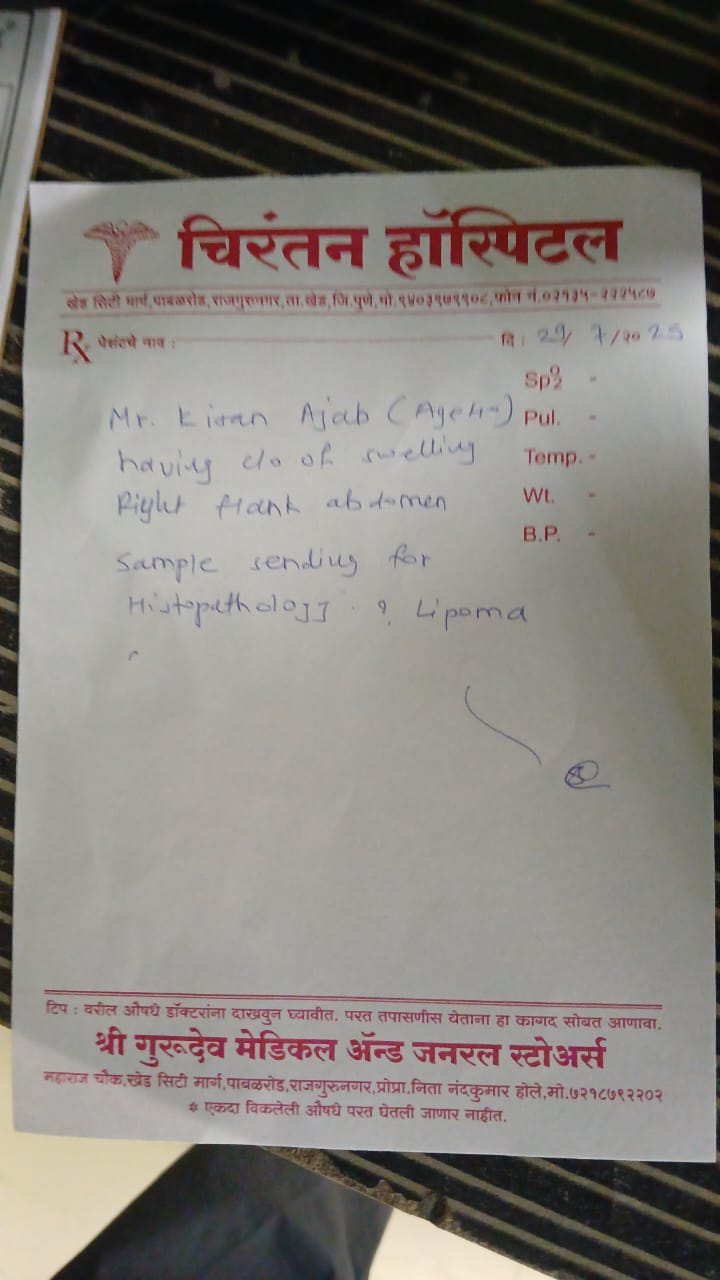 चिरंतन हॉस्पिटल
खेड सिटी मार्ग,पाबळरोड,राजगुरुनगर,ता.खेड,जि.पुणे,मो.९४०३९७९९०८,फोन नं.०२१३५-२२२५८७
Rx पेशंटचे नाव :
दि : 29/ 7/20 25
Spo2 -
Mr. Kiran Ajab
Pul. -
having c/o of swelling
Temp. -
Right flank abdomen
Wt. -
B.P. -
Sample sending for
Histopathology . ? Lipoma
टिप : वरील औषधे डॉक्टरांना दाखवुन घ्यावीत. परत तपासणीस येताना हा कागद सोबत आणावा.
श्री गुरूदेव मेडिकल ॲन्ड जनरल स्टोअर्स
महाराज चौक,खेड सिटी मार्ग,पाबळरोड,राजगुरुनगर,प्रोप्रा,निता नंदकुमार होले,मो.७२१८७९२२०२
* एकदा विकलेली औषधे परत घेतली जाणार नाहीत.